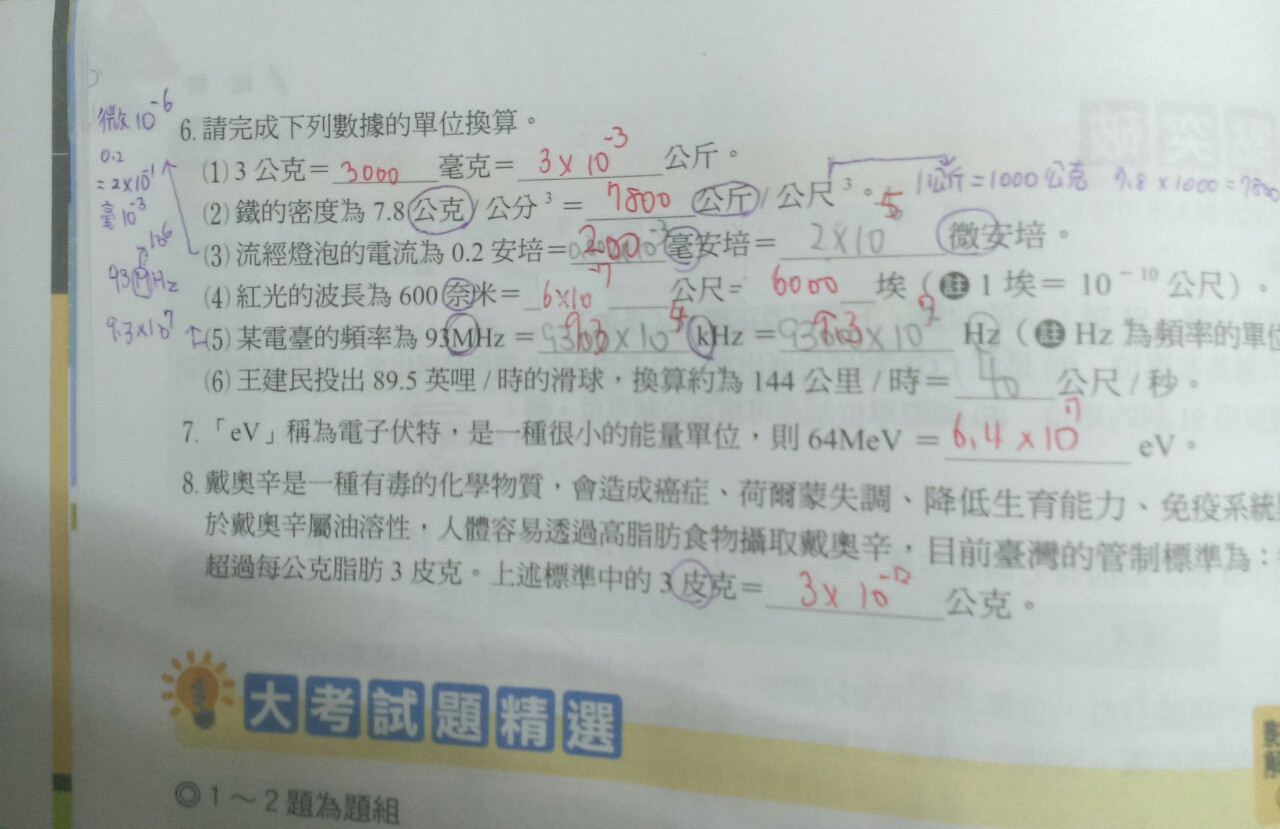 微 10⁻⁶
0.2
= 2×10⁻¹
毫 10⁻³
10⁶
93MHz
9.3×10⁷
6. 請完成下列數據的單位換算。
(1) 3 公克= 3000 毫克= 3 x 10⁻³ 公斤。
(2) 鐵的密度為 7.8 公克 / 公分³ = 7800 公斤 / 公尺³。 1公斤=1000公克 7.8 x 1000 = 7800
(3) 流經燈泡的電流為 0.2 安培= 200 毫安培= 2×10⁵ 微安培。
(4) 紅光的波長為 600 奈米= 6×10⁻⁷ 公尺= 6000 埃(註 1 埃= 10⁻¹⁰ 公尺)。
(5) 某電臺的頻率為 93MHz = 9.3 x 10⁴ kHz = 9.3 x 10⁷ Hz(註 Hz 為頻率的單位
(6) 王建民投出 89.5 英哩 / 時的滑球,換算約為 144 公里 / 時= 40 公尺 / 秒。
7. 「eV」稱為電子伏特,是一種很小的能量單位,則 64MeV = 6.4 x 10⁷ eV。
8. 戴奧辛是一種有毒的化學物質,會造成癌症、荷爾蒙失調、降低生育能力、免疫系統
於戴奧辛屬油溶性,人體容易透過高脂肪食物攝取戴奧辛,目前臺灣的管制標準為:
超過每公克脂肪 3 皮克。上述標準中的 3 皮克= 3 x 10⁻¹² 公克。
大考試題精選
◎1~2 題為題組